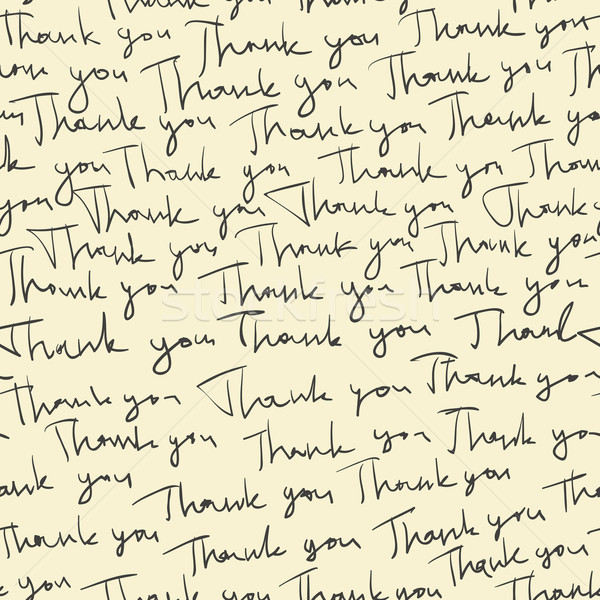 Thank you Thank you Thank you
Thank you Thank you Thank you
you Thank you Thank you Thank
Thank you Thank you Thank you
you Thank you Thank you Thank
you Thank you Thank you Thank
Thank you Thank you Thank you
Thank you Thank you Thank you
Thank you Thank you
Thank you Thank you Thank you
Thank you Thank you Thank you
you Thank you Thank you
Thank you Thank you Thank you
you Thank you Thank you
Thank you Thank you Thank
stockfresh